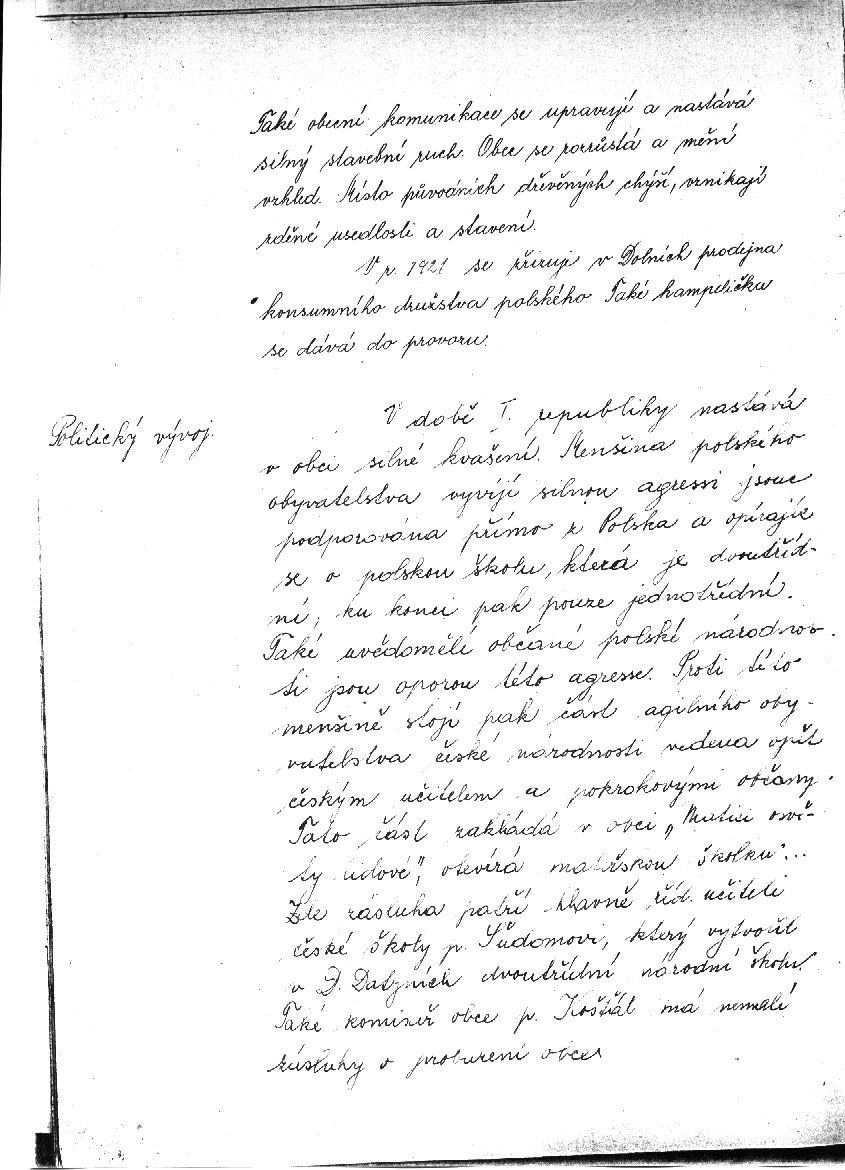 Také obecní komunikace se upravují a nastává
silný stavební ruch. Obec se rozrůstá a mění
vzhled. Místo původních dřevěných chýší, vznikají
zděné usedlosti a stavení.
V r. 1921 se zřizuje v Dolních prodejna
konsumního družstva polského Také kampelička
se dává do provozu.
Politický vývoj.
V době I. republiky nastává
v obci silné kvašení. Menšina polského
obyvatelstva vyvíjí silnou agressi jsouc
podporována přímo z Polska a opírajíc
se o polskou školu, která je dvoutříd-
ní, ku konci pak pouze jednotřídní.
Také uvědomělí občané polské národnos-
ti jsou oporou této agresse. Proti této
menšině stojí pak část agilního oby-
vatelstva české národnosti vedena opět
českým učitelem a pokrokovými občany.
Tato část zakládá v obci „Matici osvě-
ty lidové", otevírá mateřskou školku...
Zde zásluha patří hlavně říd. učiteli
české školy p. Sudomovi, který vytvořil
v D. Datyních dvoutřídní národní školu.
Také komisař obce p. Košťál má nemalé
zásluhy o probuzení obce.